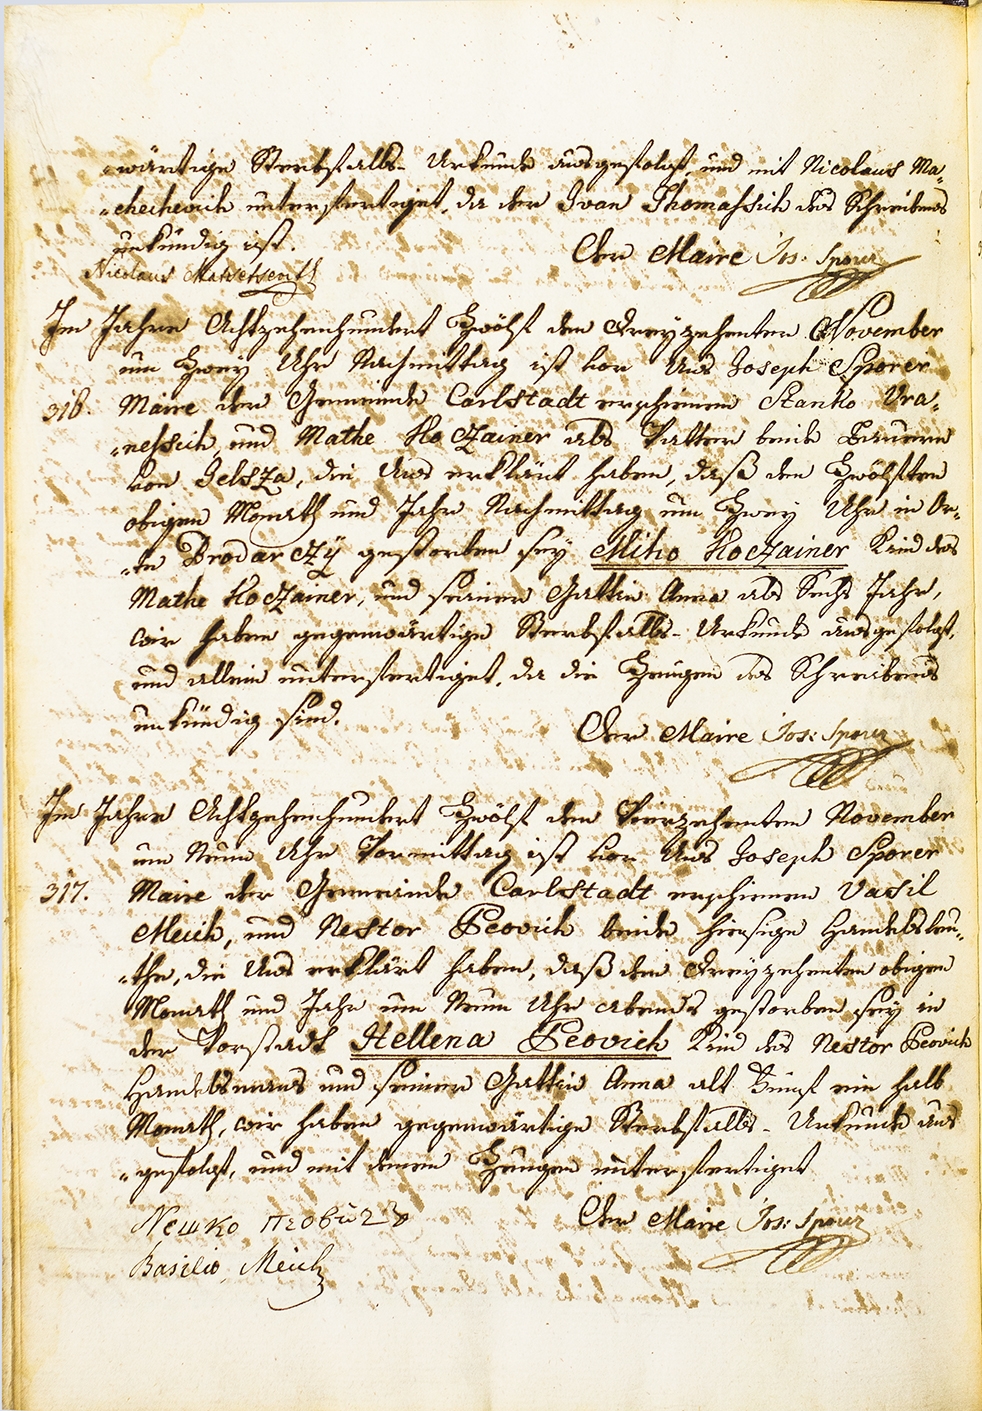 wärtige Sterbfalls- Urkunde ausgefolgt, und mit Nicolaus Ma„
„chechevich unterfertiget, da der Ivan Thomassich des Schreibens
unkündig ist.
Der Maire Jos: Sporer
Nicolaus
Im Jahre Achtzehenhundert Zwölf den Dreyzehenten November
um Zwey Uhr Nachmittag ist vor Uns Joseph Sporer
316. Maire der Gemeinde Carlstadt erschienen Stanko Vra„
„nessich, und Mathe Koczainer als Vatter beide Bauern
von Jelsza, die Uns erklärt haben, daß den Zwölften
obigen Monath und Jahr Nachmittag um Zwey Uhr in Or„
„te Brodarczy gestorben sey Miho Koczainer Kind des
Mathe Koczainer, und seiner Gattin Anna alt Sechs Jahr,
wir haben gegenwärtige Sterbfalls- Urkunde ausgefolgt,
und allein unterfertiget, da die Zeugen des Schreibens
unkündig sind.
Der Maire Jos: Sporer
Im Jahre Achtzehenhundert Zwölf den Vierzehenten November
um Neun Uhr Vormittag ist vor Uns Joseph Sporer
317. Maire der Gemeinde Carlstadt erschienen Vasil
Meich, und Nestor Peovich beide hiesige Handelsleu„
„the, die Uns erklärt haben, daß den Dreyzehenten obigen
Monath und Jahr um Neun Uhr abends gestorben sey in
der Vorstadt Hellena Peovich Kind des Nestor Peovich
Handelsmans und seiner Gattin Anna alt Fünf ein halb
Monath, wir haben gegenwärtige Sterbfalls- Urkunde aus
„gefolgt, und mit denen Zeugen unterfertiget
Der Maire Jos: Sporer
Нешко
Basilio Meich